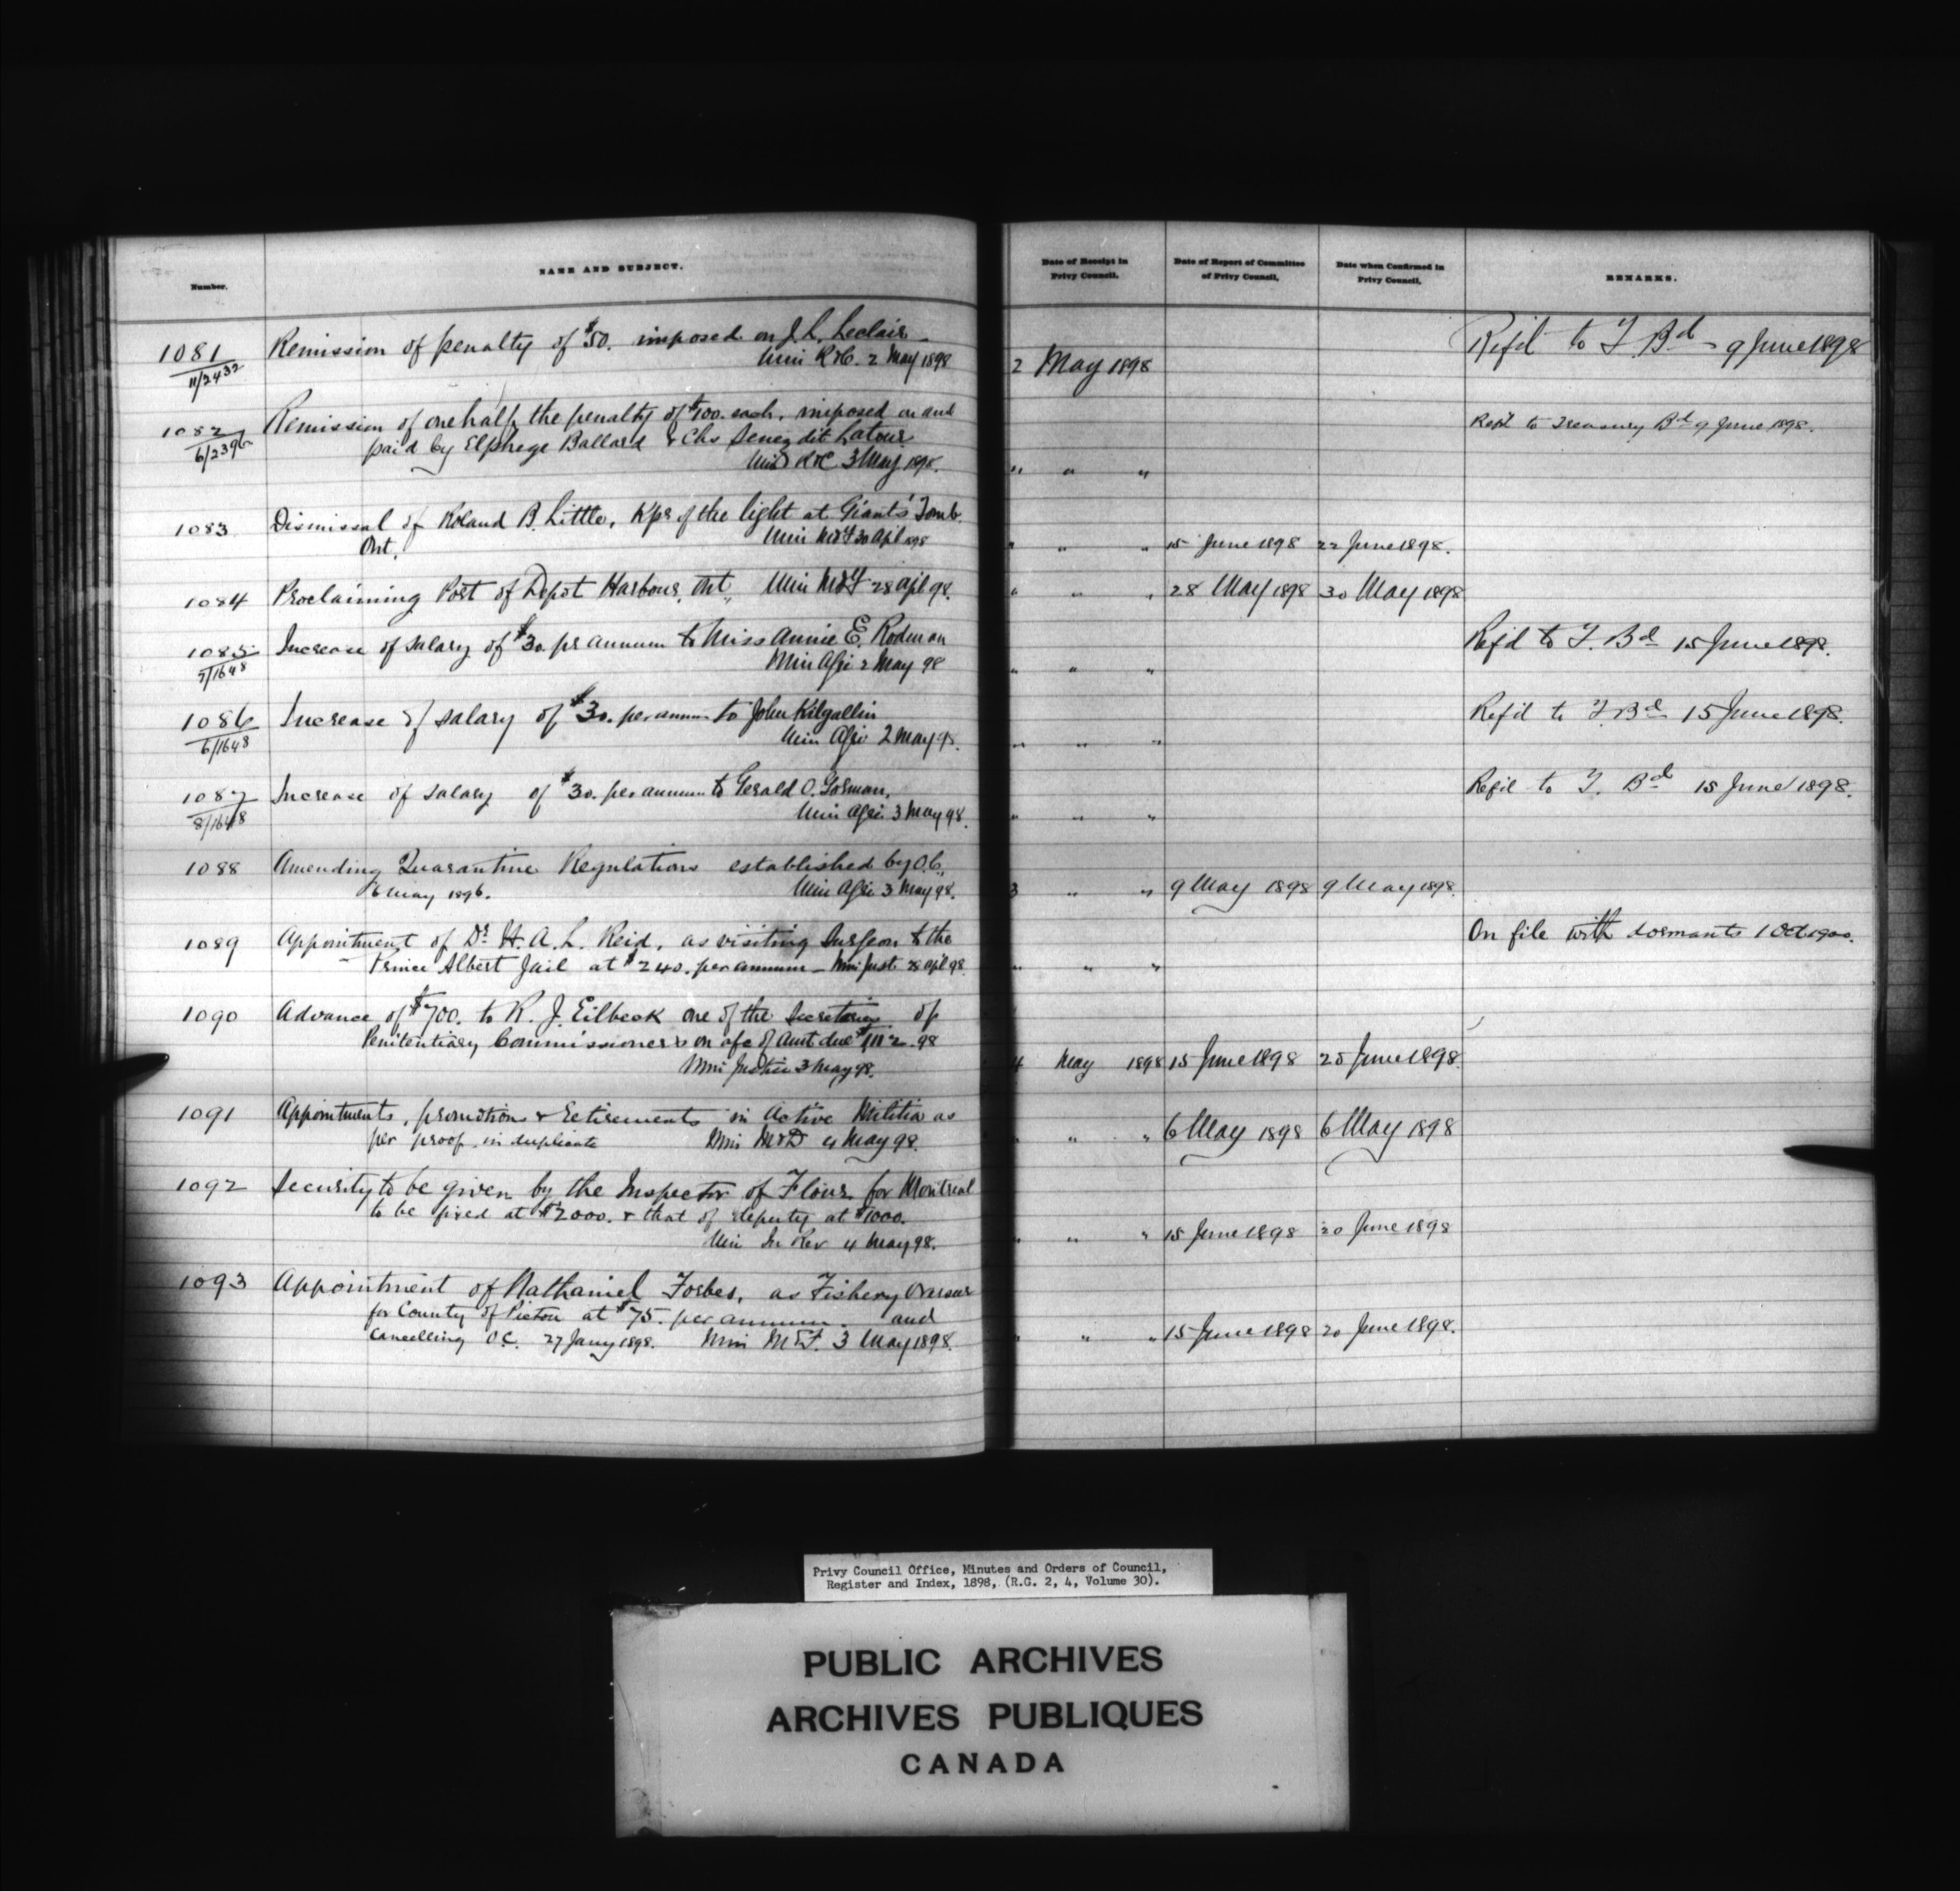 Number.
NAME AND SUBJECT.
Date of Receipt in Privy Council.
Date of Report of Committee of Privy Council.
Date when Confirmed in Privy Council.
REMARKS.
1081 Remission of penalty of $50. imposed on J. L. Leclair
11/2432 Min R&C. 2 May 1898 2 May 1898 Ref'd to T. Bd 9 June 1898
1082 Remission of one half the penalty of $100. each, imposed on and
6/2396 paid by Elphege Ballard & Chs Senez dit Latour Ref'd to Treasury Bd 9 June 1898.
Min R&C 3 May 1898. " " "
1083 Dismissal of Roland B. Little, K'pr of the light at Giants' Tomb.
Ont. Min M&F 30 Apl 1898 " " " 15 June 1898 22 June 1898.
1084 Proclaiming Port of Depot Harbour, Ont, Min M&F 28 Apl 98. " " " 28 May 1898 30 May 1898
1085 Increase of salary of $30. pr annum to Miss Annie E. Rodman Ref'd to T. Bd 15 June 1898.
5/1648 Min Agri 2 May 98 " " "
1086 Increase of salary of $30. per annum to John Kilgallin Ref'd to T. Bd 15 June 1898.
6/1648 Min Agri 2 May 98. " " "
1087 Increase of salary of $30. per annum to Gerald O. Gorman, Ref'd to T. Bd 15 June 1898.
8/1648 Min Agri 3 May 98. " " "
1088 Amending Quarantine Regulations established by O.C.,
6 May 1896. Min Agri 3 May 98. 3 " " 9 May 1898 9 May 1898.
1089 Appointment of Dr. H. A. L. Reid, as visiting Surgeon to the On file with dormants 1 Oct 1900.
Prince Albert Jail at $240. per annum - Min Just 28 Apl 98. " " "
1090 Advance of $700. to R. J. Eilbeck one of the Secretaries of
Penitentiary Commissioners on a/c of amt due $1,112.98
Min Justice 3 May 98. 4 May 1898 15 June 1898 25 June 1898.
1091 Appointments, promotions & retirements in Active Militia as
per proof in duplicate Min M&D 4 May 98. " " " 6 May 1898 6 May 1898
1092 Security to be given by the Inspector of Flour for Montreal
to be fixed at $2000. & that of deputy at $1000.
Min In Rev 4 May 98. " " " 15 June 1898 20 June 1898
1093 Appointment of Nathaniel Forbes, as Fishery Overseer
for County of Pictou at $75. per annum. and
Cancelling O.C. 27 Jany 1898. Min M&F. 3 May 1898. " " " 15 June 1898 20 June 1898.
Privy Council Office, Minutes and Orders of Council,
Register and Index, 1898, (R.G. 2, 4, Volume 30).
PUBLIC ARCHIVES
ARCHIVES PUBLIQUES
CANADA